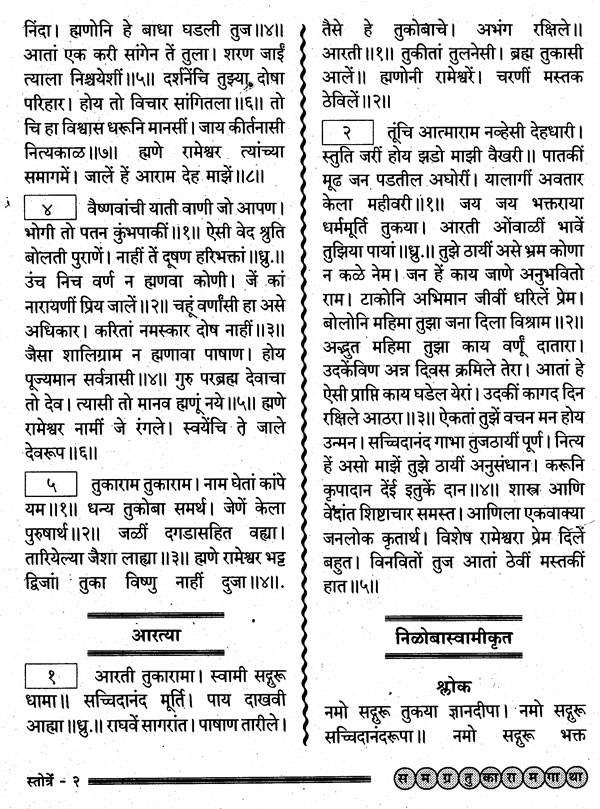 निंदा। ह्मणोनि हे बाधा घडली तुज॥४॥
आतां एक करी सांगेन तें तुला। शरण जाईं
त्याला निश्चयेशीं॥५॥ दर्शनेंचि तुझ्या, दोषा
परिहार। होय तो विचार सांगितला॥६॥ तो
चि हा विश्वास धरूनि मानसीं। जाय कीर्तनासी
नित्यकाळ॥७॥ ह्मणे रामेश्वर त्यांच्या
समागमें। जालें हें आराम देह माझें॥८॥
४ वैष्णवांची याती वाणी जो आपण।
भोगी तो पतन कुंभपाकीं॥१॥ ऐसी वेद श्रुति
बोलती पुराणें। नाहीं तें दूषण हरिभक्तां॥ध्रु.॥
उंच निच वर्ण न ह्मणवा कोणी। जें कां
नारायणीं प्रिय जालें॥२॥ चहूं वर्णांसी हा असे
अधिकार। करितां नमस्कार दोष नाहीं॥३॥
जैसा शालिग्राम न ह्मणावा पाषाण। होय
पूज्यमान सर्वत्रासी॥४॥ गुरु परब्रह्म देवाचा
तो देव। त्यासी तो मानव ह्मणूं नये॥५॥ ह्मणे
रामेश्वर नामीं जे रंगले। स्वयेंचि ते जाले
देवरूप॥६॥
५ तुकाराम तुकाराम। नाम घेतां कांपे
यम॥१॥ धन्य तुकोबा समर्थ। जेणें केला
पुरुषार्थ॥२॥ जळीं दगडासहित वह्या।
तारियेल्या जैशा लाह्या॥३॥ ह्मणे रामेश्वर भट्ट
द्विजां। तुका विष्णु नाहीं दुजा॥४॥.
आरत्या
१ आरती तुकारामा। स्वामी सद्गुरू
धामा॥ सच्चिदानंद मूर्ति। पाय दाखवी
आह्मा॥ध्रु.॥ राघवें सागरांत। पाषाण तारीले।
तैसे हे तुकोबाचे। अभंग रक्षिले॥
आरती॥१॥ तुकीतां तुलनेसी। ब्रह्म तुकासी
आलें॥ ह्मणोनी रामेश्वरें। चरणीं मस्तक
ठेविलें॥२॥
२ तूंचि आत्माराम नव्हेसी देहधारी।
स्तुति जरीं होय झडो माझी वैखरी॥ पातकीं
मूढ जन पडतील अघोरीं। यालागीं अवतार
केला महीवरी॥१॥ जय जय भक्तराया
धर्ममूर्ति तुकया। आरती ओंवाळीं भावें
तुझिया पायां॥ध्रु.॥ तुझे ठायीं असे भ्रम कोणा
न कळे नेम। जन हें काय जाणे अनुभवितो
राम। टाकोनि अभिमान जीवीं धरिलें प्रेम।
बोलोनि महिमा तुझा जना दिला विश्राम॥२॥
अद्भुत महिमा तुझा काय वर्णूं दातारा।
उदकेंविण अन्न दिवस क्रमिले तेरा। आतां हे
ऐसी प्राप्ति काय घडेल येरां। उदकीं कागद दिन
रक्षिले आठरा॥३॥ ऐकतां तुझें वचन मन होय
उन्मन। सच्चिदानंद गाभा तुजठायीं पूर्ण। नित्य
हें असो माझें तुझे ठायीं अनुसंधान। करूनि
कृपादान देंई इतुकें दान॥४॥ शास्त्र आणि
वेदांत शिष्टाचार समस्त। आणिला एकवाक्या
जनलोक कृतार्थ। विशेष रामेश्वरा प्रेम दिलें
बहुत। विनवितों तुज आतां ठेवीं मस्तकीं
हात॥५॥
निळोबास्वामीकृत
श्लोक
नमो सद्गुरू तुकया ज्ञानदीपा। नमो सद्गुरू
सच्चिदानंदरूपा॥ नमो सद्गुरू भक्त
स्तोत्रें - २
स म ग्र तु का रा म गा था